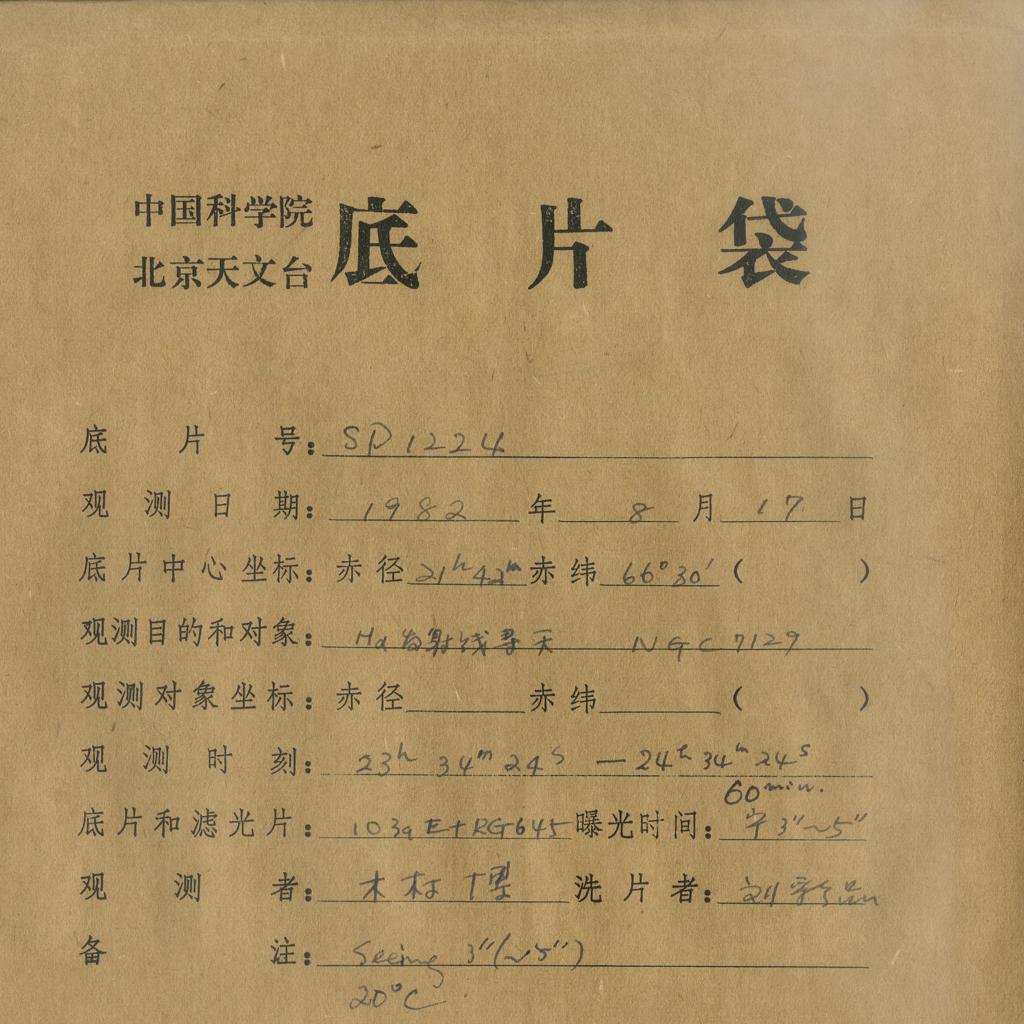 中国科学院
北京天文台
底片袋
底片号：SP1224
观测日期：1982年8月17日
底片中心坐标：赤径21h42m赤纬66°30′（ ）
观测目的和对象：Hα发射线寻天 NGC7129
观测对象坐标：赤径 赤纬 （ ）
观测时刻：23h 34m 24s — 24h 34m 24s
60min.
底片和滤光片：103aE+RG645曝光时间：宁3″~5″
观测者：木村博 洗片者：刘
备注：Seeing 3″(~5″)
20°C